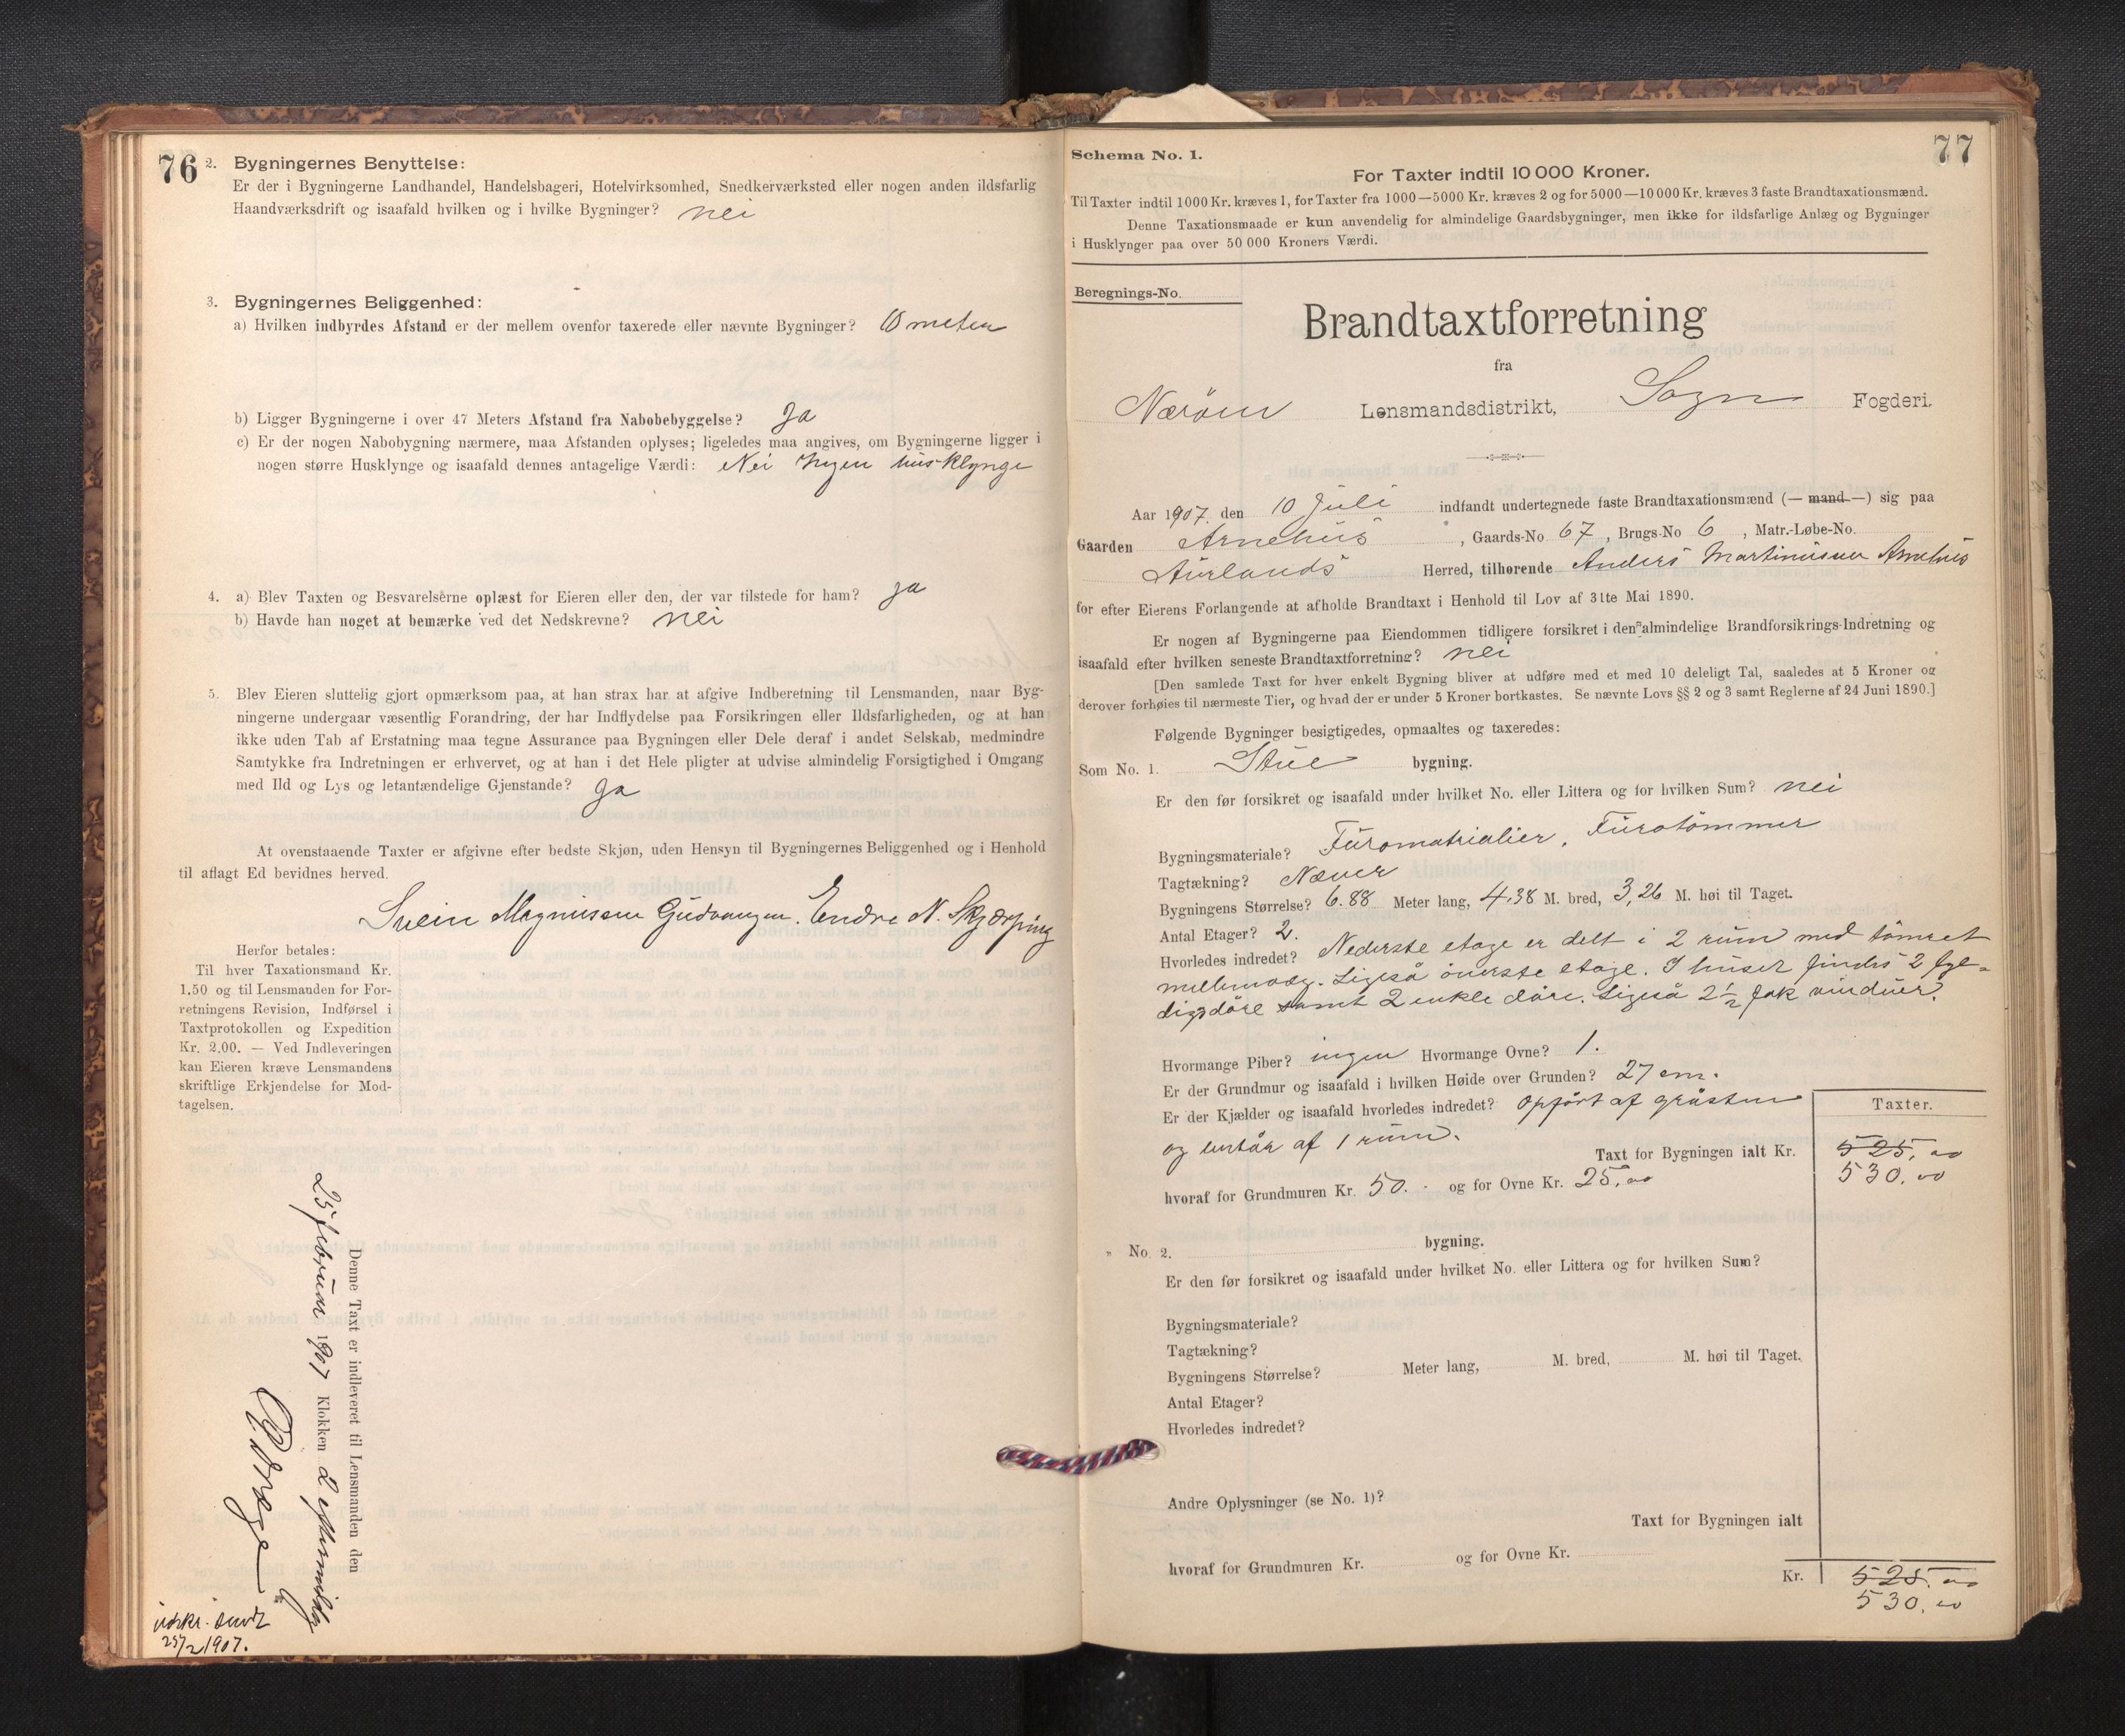 76
2. Bygningernes Benyttelse:
Er der i Bygningerne Landhandel, Handelsbageri, Hotelvirksomhed, Snedkerværksted eller nogen anden ildsfarlig
Haandværksdrift og isaafald hvilken og i hvilke Bygninger? nei
3. Bygningernes Beliggenhed:
a) Hvilken indbyrdes Afstand er der mellem ovenfor taxerede eller nævnte Bygninger? 10 meter
b) Ligger Bygningerne i over 47 Meters Afstand fra Nabobebyggelse? Ja
c) Er der nogen Nabobygning nærmere, maa Afstanden oplyses; ligeledes maa angives, om Bygningerne ligger i
nogen større Husklynge og isaafald dennes antagelige Værdi: Nei Ingen husklynge
4. a) Blev Taxten og Besvarelserne oplæst for Eieren eller den, der var tilstede for ham? ja
b) Havde han noget at bemærke ved det Nedskrevne? nei
5. Blev Eieren sluttelig gjort opmærksom paa, at han strax har at afgive Indberetning til Lensmanden, naar Byg-
ningerne undergaar væsentlig Forandring, der har Indflydelse paa Forsikringen eller Ildsfarligheden, og at han
ikke uden Tab af Erstatning maa tegne Assurance paa Bygningen eller Dele deraf i andet Selskab, medmindre
Samtykke fra Indretningen er erhvervet, og at han i det Hele pligter at udvise almindelig Forsigtighed i Omgang
med Ild og Lys og letantændelige Gjenstande? Ja
At ovenstaaende Taxter er afgivne efter bedste Skjøn, uden Hensyn til Bygningernes Beliggenhed og i Henhold
til aflagt Ed bevidnes herved.
Svein Magnussen Gudvangen. Endre N. Skjærping
Herfor betales:
Til hver Taxationsmand Kr.
1.50 og til Lensmanden for For-
retningens Revision, Indførsel i
Taxtprotokollen og Expedition
Kr. 2.00. — Ved Indleveringen
kan Eieren kræve Lensmandens
skriftlige Erkjendelse for Mod-
tagelsen.
Denne Taxt er indleveret til Lensmanden den
25 februar 1907 Klokken 2 eftermidag
udskr. sendt
25/2 1907.
77
Schema No. 1.
For Taxter indtil 10 000 Kroner.
Til Taxter indtil 1000 Kr. kræves 1, for Taxter fra 1000—5000 Kr. kræves 2 og for 5000—10 000 Kr. kræves 3 faste Brandtaxationsmænd.
Denne Taxationsmaade er kun anvendelig for almindelige Gaardsbygninger, men ikke for ildsfarlige Anlæg og Bygninger
i Husklynger paa over 50 000 Kroners Værdi.
Beregnings-No.
Brandtaxtforretning
fra
Nærøen Lensmandsdistrikt, Sogn Fogderi.
Aar 1907. den 10 Juli indfandt undertegnede faste Brandtaxationsmænd (— mand —) sig paa
Gaarden Arnehus, Gaards-No. 67, Brugs-No 6, Matr.-Løbe-No.
Aurlands Herred, tilhørende Anders Martinussen Arnehus
for efter Eierens Forlangende at afholde Brandtaxt i Henhold til Lov af 31te Mai 1890.
Er nogen af Bygningerne paa Eiendommen tidligere forsikret i den almindelige Brandforsikrings-Indretning og
isaafald efter hvilken seneste Brandtaxtforretning? nei
[Den samlede Taxt for hver enkelt Bygning bliver at udføre med et med 10 deleligt Tal, saaledes at 5 Kroner og
derover forhøies til nærmeste Tier, og hvad der er under 5 Kroner bortkastes. Se nævnte Lovs §§ 2 og 3 samt Reglerne af 24 Juni 1890.]
Følgende Bygninger besigtigedes, opmaaltes og taxeredes:
Som No. 1. Stue bygning.
Er den før forsikret og isaafald under hvilket No. eller Littera og for hvilken Sum? nei
Bygningsmateriale? Furomatrialier, Furotömmer
Tagtækning? Næver
Bygningens Størrelse? 6.88 Meter lang, 4,38 M. bred, 3,26 M. høi til Taget.
Antal Etager? 2.
Hvorledes indredet? Nederste etage er delt i 2 rum med tömret
mellemvæg. Ligeså överste etage. I huset findes 2 fyl-
digsdöre samt 2 enkle döre. Ligeså 2½ fak vinduer.
Hvormange Piber? ingen Hvormange Ovne? 1.
Er der Grundmur og isaafald i hvilken Høide over Grunden? 27 cm.
Er der Kjælder og isaafald hvorledes indredet? Opfört af gråsten
og består af 1 rum.
Taxter.
Taxt for Bygningen ialt Kr. 525,00
530,00
hvoraf for Grundmuren Kr. 50. - og for Ovne Kr. 25,00
" No. 2. bygning.
Er den før forsikret og isaafald under hvilket No. eller Littera og for hvilken Sum?
Bygningsmateriale?
Tagtækning?
Bygningens Størrelse? Meter lang, M. bred, M. høi til Taget.
Antal Etager?
Hvorledes indredet?
Andre Oplysninger (se No. 1)?
Taxt for Bygningen ialt
hvoraf for Grundmuren Kr. og for Ovne Kr.
Kr. 525,00
530,00